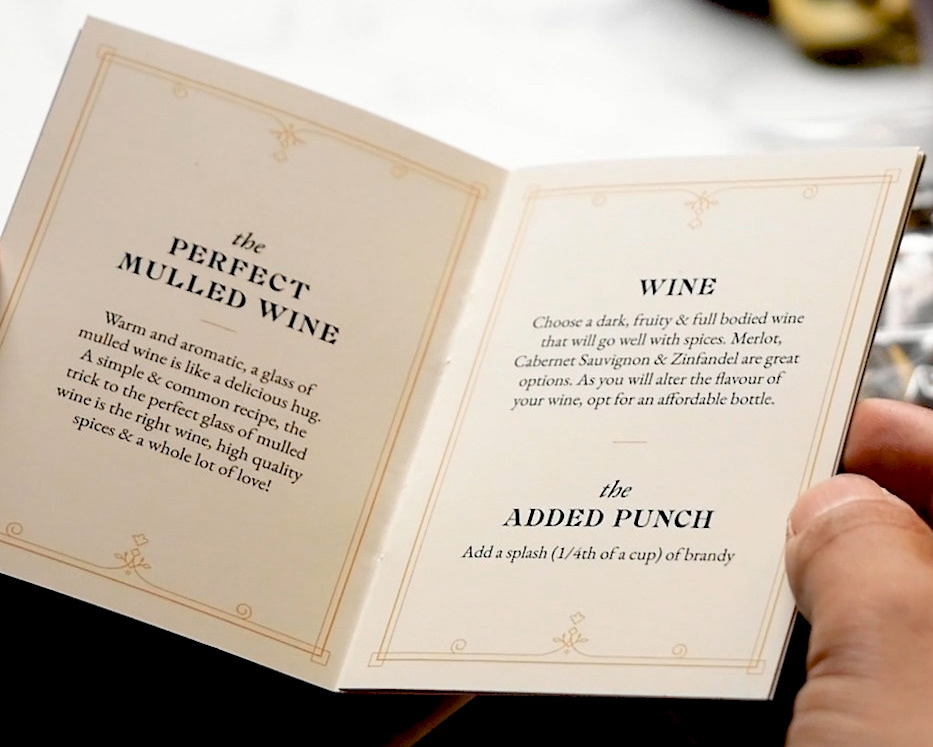 the
PERFECT
MULLED WINE
Warm and aromatic, a glass of
mulled wine is like a delicious hug.
A simple & common recipe, the
trick to the perfect glass of mulled
wine is the right wine, high quality
spices & a whole lot of love!
WINE
Choose a dark, fruity & full bodied wine
that will go well with spices. Merlot,
Cabernet Sauvignon & Zinfandel are great
options. As you will alter the flavour of
your wine, opt for an affordable bottle.
the
ADDED PUNCH
Add a splash (1/4th of a cup) of brandy